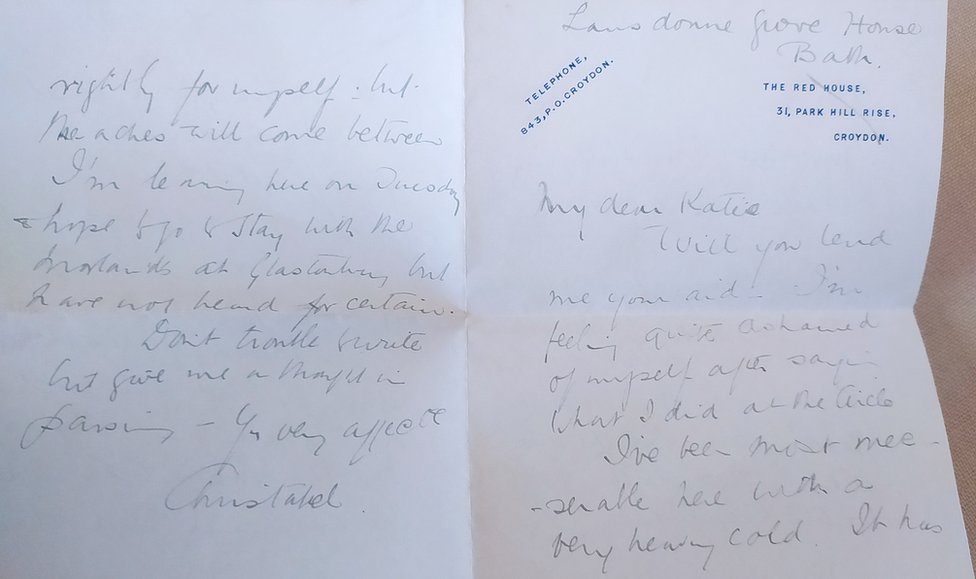 Lansdowne Grove House
Bath.
TELEPHONE,
843, P.O. CROYDON.
THE RED HOUSE,
31, PARK HILL RISE,
CROYDON.
My dear Katie
Will you lend
me your aid - I'm
feeling quite ashamed
of myself after saying
what I did at the Circle
I've been most mee-
-serable here with a
very heavy cold. It has
rightly for myself - but
the aches will come between
I'm leaving here on Tuesday
& hope to go & stay with the
at Glastonbury but
have not heard for certain.
Don't trouble to write
but give me a thought in
passing - Yr very affecte
Christabel